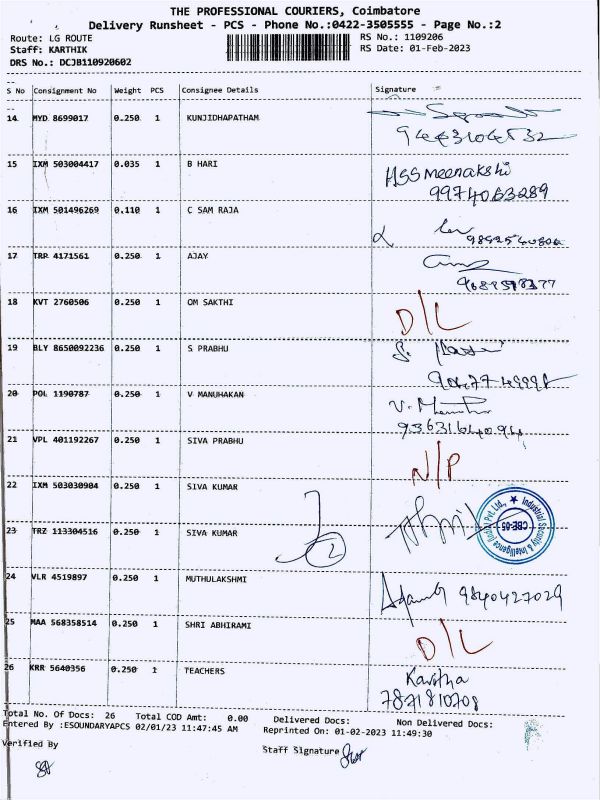 THE PROFESSIONAL COURIERS, Coimbatore
Delivery Runsheet - PCS - Phone No.:0422-3505555 - Page No.:2
Route: LG ROUTE RS No.: 1109206
Staff: KARTHIK RS Date: 01-Feb-2023
DRS No.: DCJB110920602
S No Consignment No Weight PCS Consignee Details Signature
14 MYD 8699017 0.250 1 KUNJIDHAPATHAM
15 IXM 503004417 0.035 1 B HARI HSS meenakshi
9974063289
16 IXM 501496269 0.110 1 C SAM RAJA
17 TRP 4171561 0.250 1 AJAY
18 KVT 2760506 0.250 1 OM SAKTHI D/L
19 BLY 8650092236 0.250 1 S PRABHU
20 POL 1190787 0.250 1 V MANUHAKAN
21 VPL 401192267 0.250 1 SIVA PRABHU N/P
22 IXM 503030904 0.250 1 SIVA KUMAR
23 TRZ 113304516 0.250 1 SIVA KUMAR 2
Industrial Security & Intelligence (India) Pvt. Ltd.,
CBE-05
24 VLR 4519897 0.250 1 MUTHULAKSHMI 9840427029
25 MAA 568358514 0.250 1 SHRI ABHIRAMI D/L
26 KRR 5640356 0.250 1 TEACHERS Kavitha
7871810708
Total No. Of Docs: 26 Total COD Amt: 0.00 Delivered Docs: Non Delivered Docs:
Entered By :ESOUNDARYAPCS 02/01/23 11:47:45 AM Reprinted On: 01-02-2023 11:49:30
Verified By Staff Signature